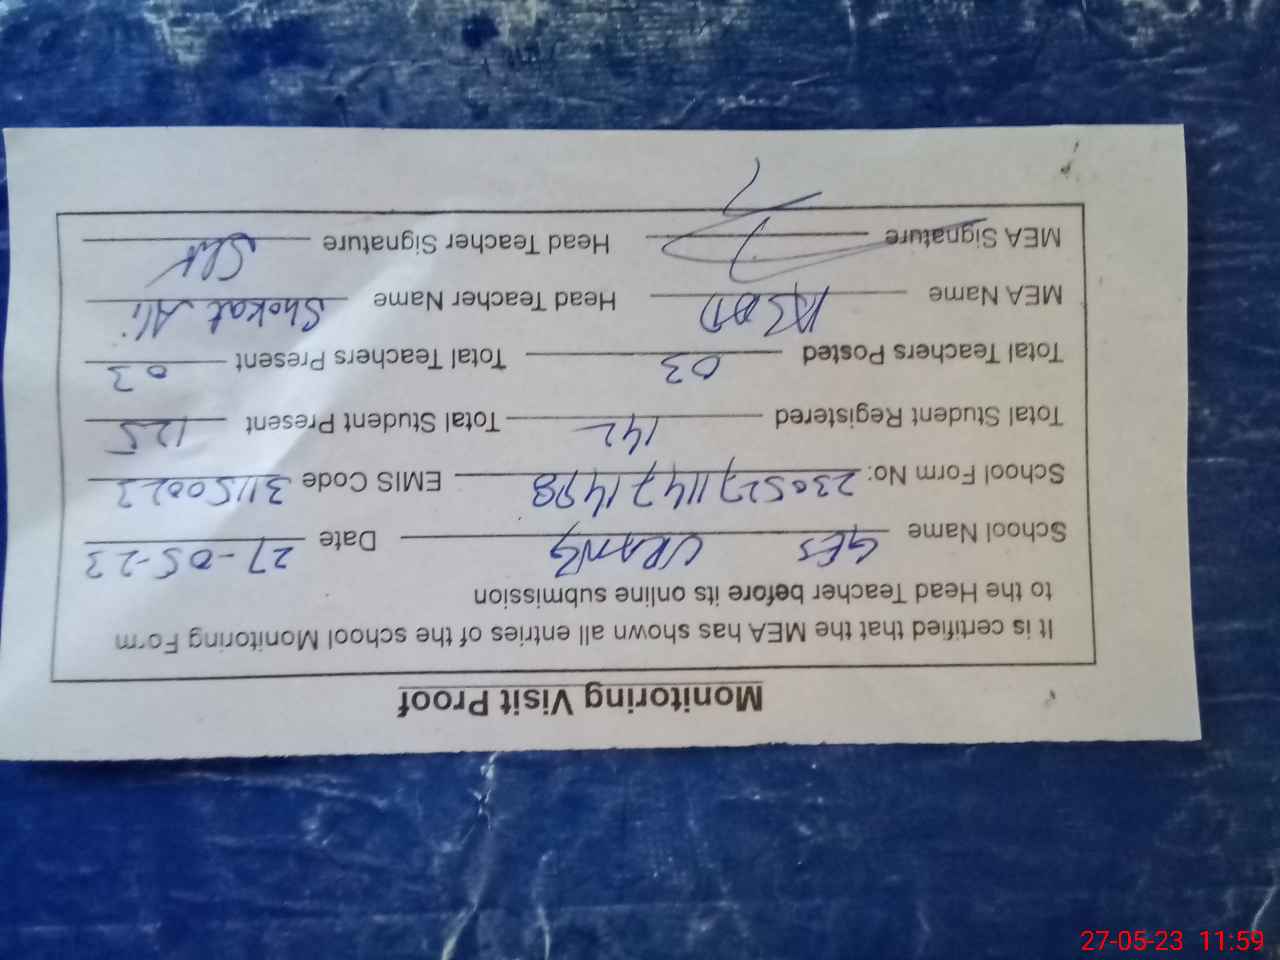 Monitoring Visit Proof
It is certified that the MEA has shown all entries of the school Monitoring Form
to the Head Teacher before its online submission
School Name GES URANG Date 27-05-23
School Form No: 23052711471498 EMIS Code 31150023
Total Student Registered 142 Total Student Present 125
Total Teachers Posted 03 Total Teachers Present 03
MEA Name ASAD Head Teacher Name Shokat Ali
MEA Signature Head Teacher Signature
27-05-23 11:59